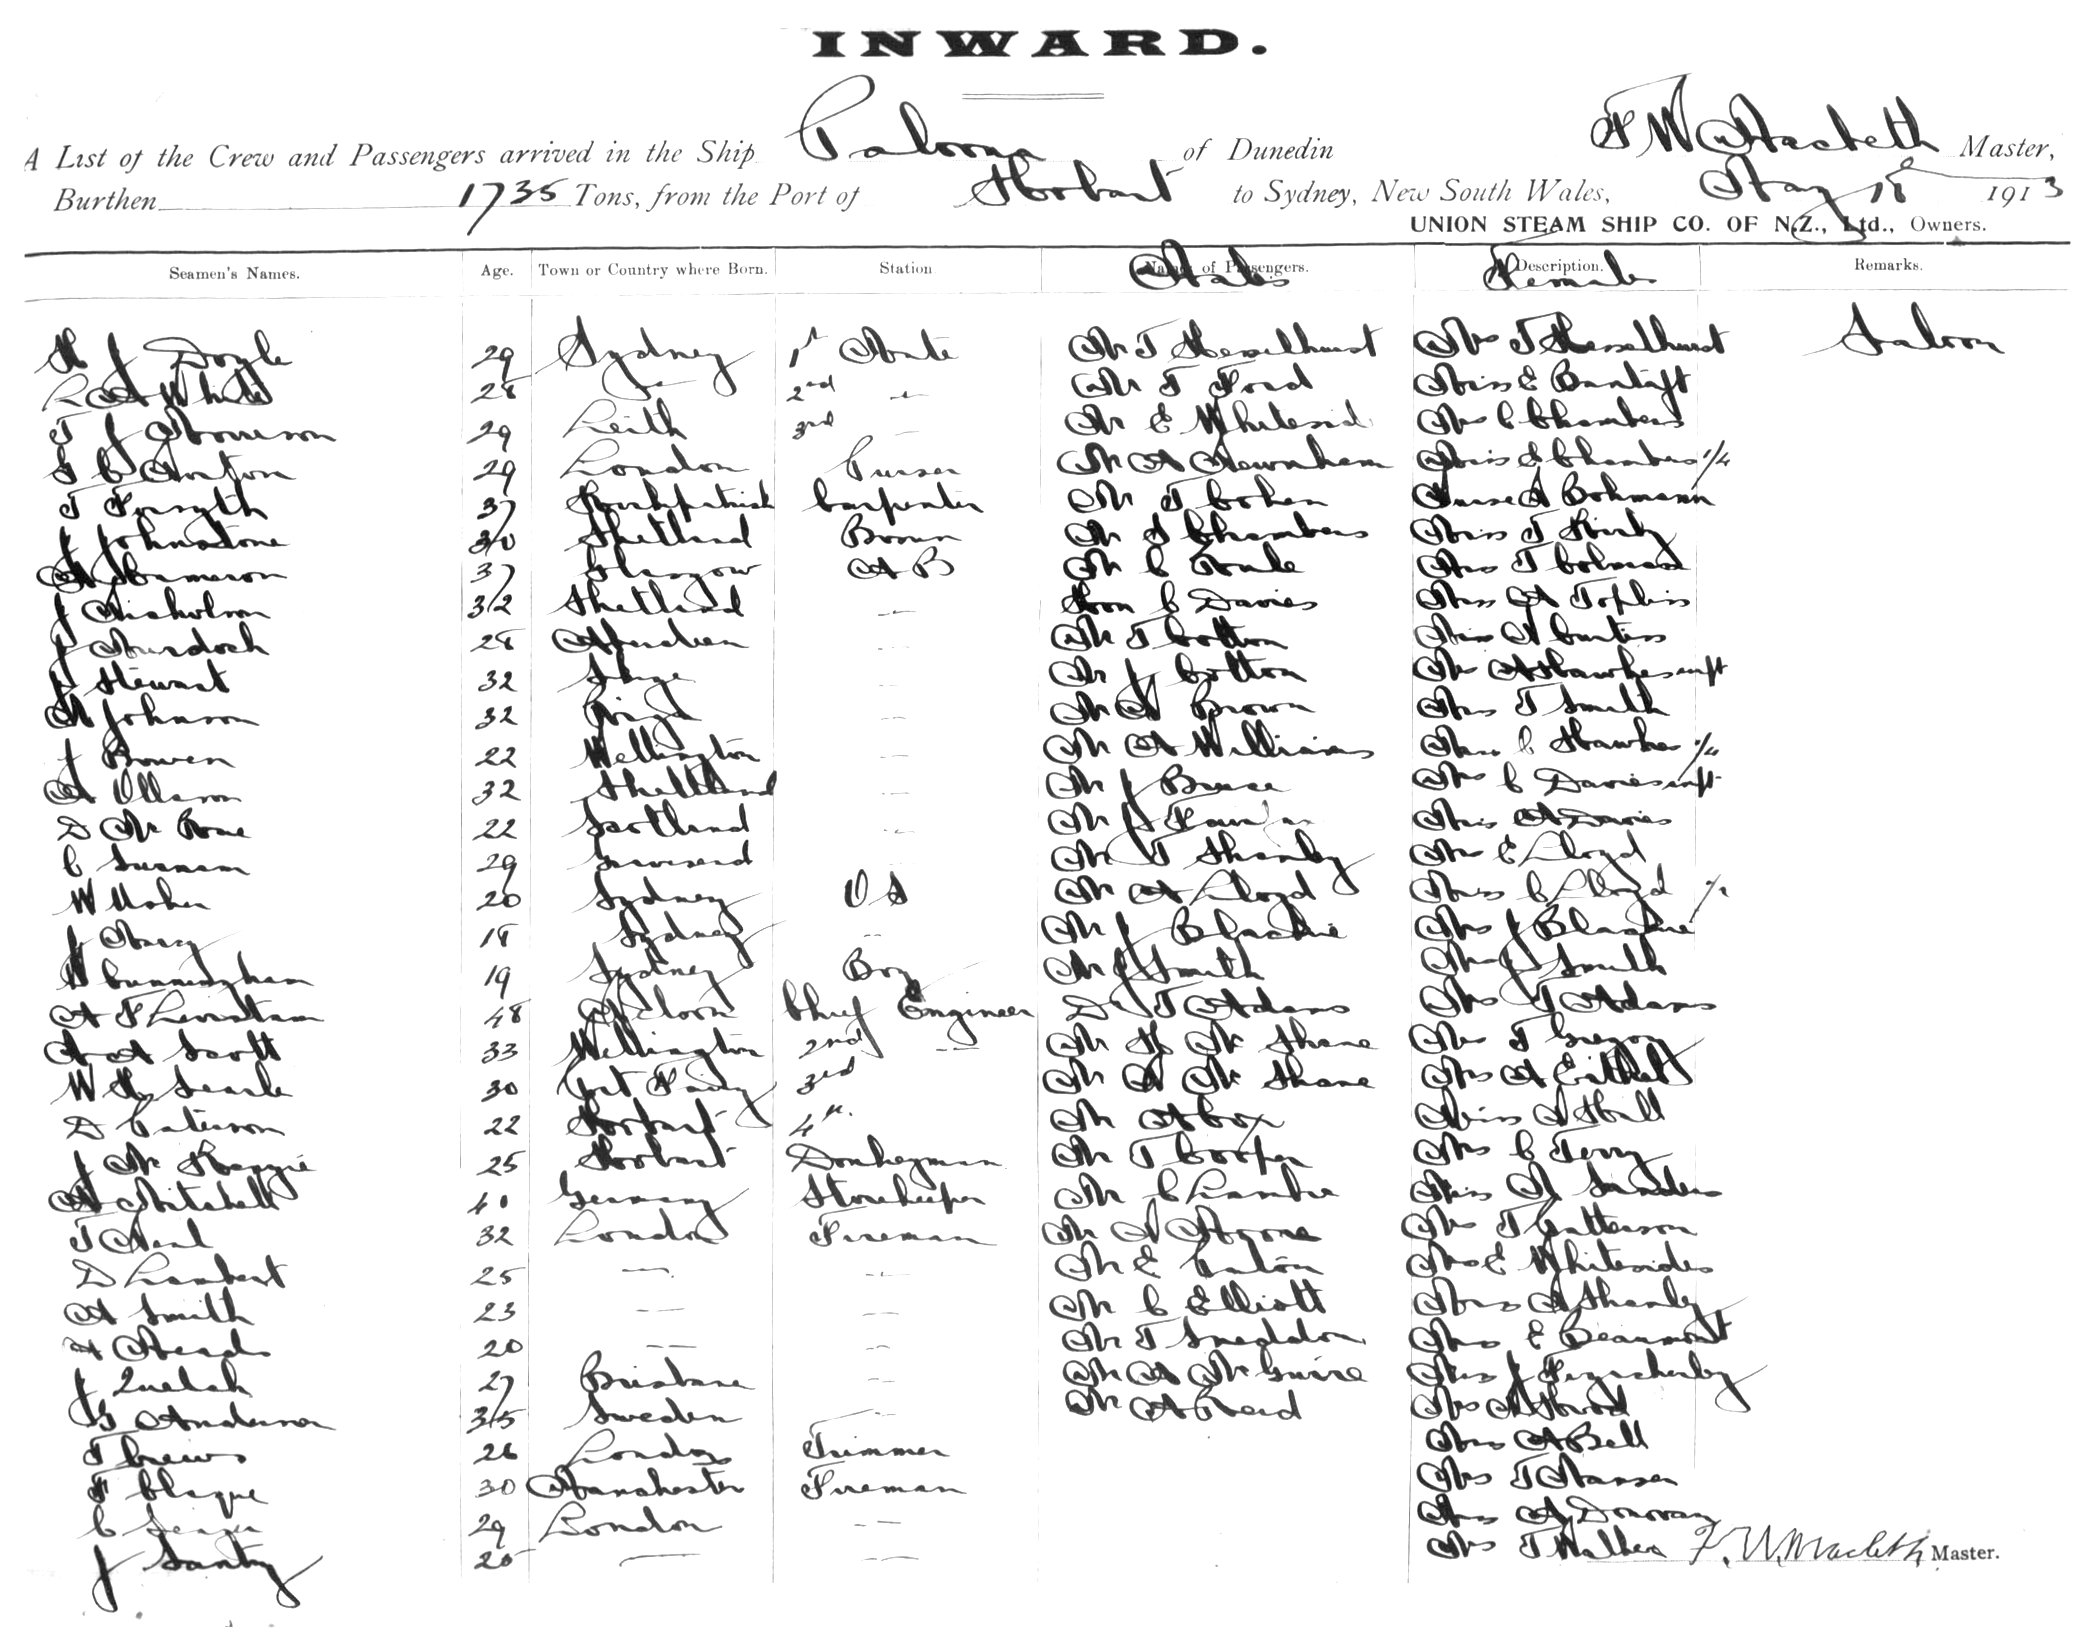 INWARD.
A List of the Crew and Passengers arrived in the Ship Paloona of Dunedin F W Macbeth Master,
Burthen 1735 Tons, from the Port of Hobart to Sydney, New South Wales, May 18 1913
UNION STEAM SHIP CO. OF N.Z., Ltd., Owners.
Seamen's Names. Age. Town or Country where Born. Station Names of Passengers. Males Description. Female Remarks.
H J Doyle 29 Sydney 1st Mate Mr T Heselhurst Mrs T Hesselhurst Saloon
R A White 28 2nd Mr T Ford Miss E
T J Morrison 29 Leith 3rd Mr E Whitesid Mrs C Chambers
F C Norton 29 London Purser Mr A Newnham Miss E Chambers 1/4
T Forsyth 37 Kirkpatrick Carpenter Mr T Cohen Nurse A Bohmann
J Johnstone 30 Shetland Bosun Mr S Chambers Miss T Kirby
A Cameron 37 Glasgow A B Mr C Mrs T Colman
J Nicholson 32 Shetland Hon C Davies Miss A Toplis
J Murdoch 28 Aberdeen Mr T Cotton Miss A Curtiss
J Stewart 32 Skye Mr J Cotton Mrs A Hawkes inft
A Johnson 32 Mr A Brown Mrs T Smith
J Bowen 22 Wellington Mr A Williams Miss C Hawkes 1/4
A Ollason 32 Shettland Mr J Bruce Mrs C Davies inft
D Mc Scotland Mr J Miss A Davies
C 29 Mr T Shanby Mrs E Lloyd
W Usher 20 Sydney O S Mr A Lloyd Miss C Lloyd 1/2
J 18 Sydney Mr J Blackie Mrs J Blackie
W Cunningham 19 Sydney Boy Mr J Smith Mrs J Smith
A F 48 Chief Engineer Dr T Adams Mrs T Adams
A A Scott 33 Wellington 2nd Mr H Mc Shane Mrs T Gregory
W H Searle 30 Port Fairy 3rd Mr A Mc Shane Mrs A
D Paterson 22 Hobart 4th Mr A Cox Miss A Hall
J Mc Kenzie 25 Hobart Donkeyman Mr T Cooper Mrs C Terry
A Mitchell 40 Germany Storekeeper Mr C Miss A Sanders
T Neal 32 London Fireman Mr A Moore Mrs T Patterson
D Lambert 25 Mr E Eaton Mrs E Whitesides
A Smith 23 Mr C Elliott Miss A Shanley
A Meads 20 Mr T Sneddon Mrs E Beaumont
J Quelch 27 Brisbane Mr A McGuire Miss J
G Anderson 35 Sweden Mr A Reid Mrs A
T Crews 26 London Trimmer Miss A Bell
F Clague 30 Manchester Fireman Mrs T Hansen
C 29 London Miss A Donovan
J Santry 28 Mrs T Walker F. W. Macbeth Master.